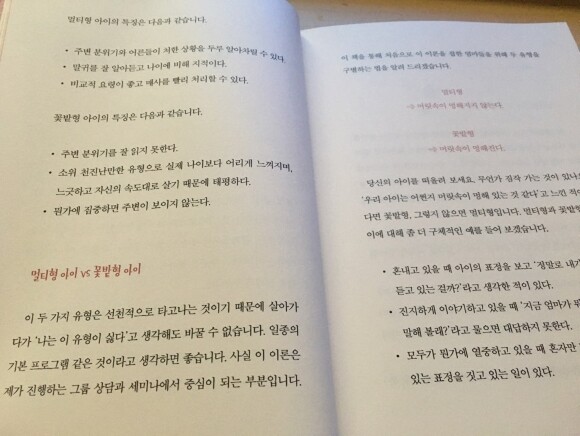 멀티형 아이의 특징은 다음과 같습니다.
• 주변 분위기와 어른들이 처한 상황을 두루 알아차릴 수 있다.
• 말귀를 잘 알아듣고 나이에 비해 지적이다.
• 비교적 요령이 좋고 매사를 빨리 처리할 수 있다.
꽃밭형 아이의 특징은 다음과 같습니다.
• 주변 분위기를 잘 읽지 못한다.
• 소위 천진난만한 유형으로 실제 나이보다 어리게 느껴지며,
느긋하고 자신의 속도대로 살기 때문에 태평하다.
• 뭔가에 집중하면 주변이 보이지 않는다.
멀티형 아이 vs 꽃밭형 아이
이 두 가지 유형은 선천적으로 타고나는 것이기 때문에 살아가
다가 '나는 이 유형이 싫다'고 생각해도 바꿀 수 없습니다. 일종의
기본 프로그램 같은 것이라고 생각하면 좋습니다. 사실 이 이론은
제가 진행하는 그룹 상담과 세미나에서 중심이 되는 부분입니다.
이 책을 통해 처음으로 이 이론을 접한 엄마들을 위해 두 유형을
구별하는 법을 알려 드리겠습니다.
멀티형
⇨ 머릿속이 멍해지지 않는다.
꽃밭형
⇨ 머릿속이 멍해진다.
당신의 아이를 떠올려 보세요. 무언가 짐작 가는 것이 있나요
'우리 아이는 어쩐지 머릿속이 멍해 있는 것 같다'고 느낀 적이
다면 꽃밭형, 그렇지 않으면 멀티형입니다. 멀티형과 꽃밭형
이에 대해 좀 더 구체적인 예를 들어 보겠습니다.
• 혼내고 있을 때 아이의 표정을 보고 '정말로 내가
듣고 있는 걸까?'라고 생각한 적이 있다.
• 진지하게 이야기하고 있을 때 '지금 엄마가 뭐
말해 볼래?'라고 물으면 대답하지 못한다.
• 모두가 뭔가에 열중하고 있을 때 혼자만
있는 표정을 짓고 있는 일이 있다.